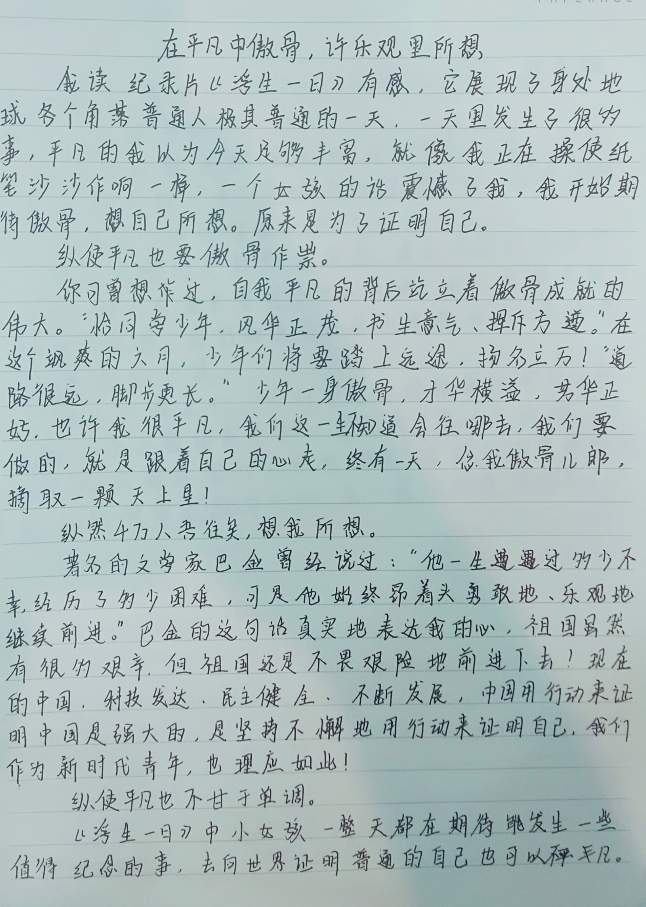 在平凡中傲骨，许乐观里所想
我读纪录片《浮生一日》有感，它展现了身处地
球各个角落普通人极其普通的一天，一天里发生了很多
事，平凡的我以为今天足够丰富，就像我正在操使纸
笔沙沙作响一样，一个女孩的话震憾了我，我开始期
待傲骨，想自己所想。原来是为了证明自己。
纵使平凡也要傲骨作祟。
你可曾想作过，自我平凡的背后屹立着傲骨成就的
伟大。"恰同学少年，风华正茂，书生意气、挥斥方遒。"在
这个飒爽的六月，少年们将要踏上远途，扬名立万！"道
路很远，脚步更长。"少年一身傲骨，才华横溢，芳华正
好，也许我很平凡，我们这一生不知道会往哪去，我们要
做的，就是跟着自己的心走，终有一天，信我傲骨儿郎，
摘取一颗天上星！
纵然千万人吾往矣，想我所想。
著名的文学家巴金曾经说过："他一生遭遇过多少不
幸，经历了多少困难，可是他始终昂着头勇敢地、乐观地
继续前进。"巴金的这句话真实地表达我的心，祖国虽然
有很多艰辛，但祖国还是不畏艰险地前进下去！现在
的中国，科技发达、民主健全、不断发展，中国用行动来证
明中国是强大的，是坚持不懈地用行动来证明自己，我们
作为新时代青年，也理应如此！
纵使平凡也不甘于单调。
《浮生一日》中小女孩一整天都在期待能发生一些
值得纪念的事，去向世界证明普通的自己也可以平凡。